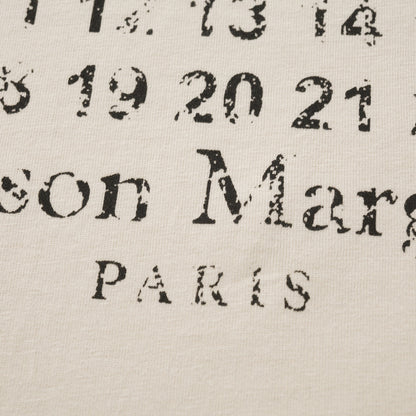 11 12 13 14
19 20 21
son Marg
PARIS